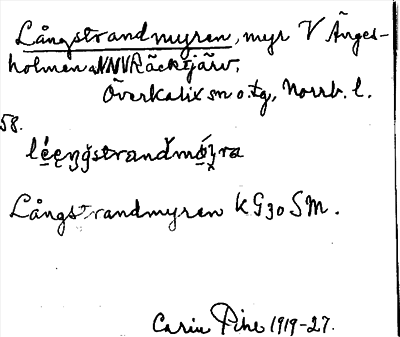 Långstrandmyren, myr V Änges-
holmen NNV Räcktjärv,
Överkalix sn o. tg, Norrb. l.
58.
léęŋǧstrandmó̱y̌ra
Långstrandmyren KG30SM.
Carin Pihe 1919-27.